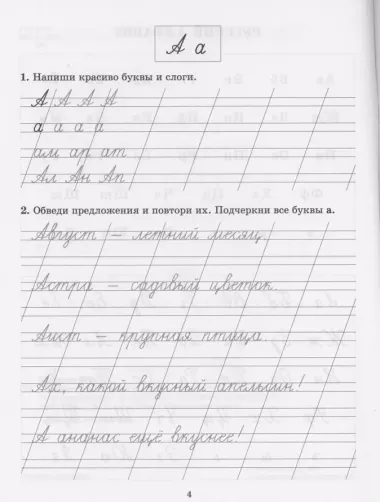 А а
1. Напиши красиво буквы и слоги.
А А А А
а а а а
ам ар ат
Ал Ан Ап
2. Обведи предложения и повтори их. Подчеркни все буквы а.
Август – летний месяц.
Астра – садовый цветок.
Аист – крупная птица.
Ах, какой вкусный апельсин!
А ананас ещё вкуснее!
4